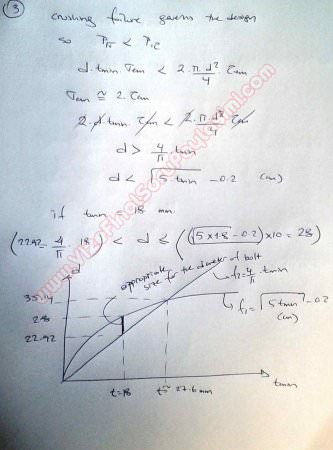 3
crushing failure governs the design
so Pπ < Pτ2
d.tmin σem < 2.π.d²/4 τem
σem ≅ 2.τem
2.d.tmin τem < 2.π.d²/4 τem
d > 4/π tmin
d < √5 tmin - 0.2 (cm)
if tmin = 18 mm.
(22.92 = 4/π . 18) < d ≤ ((√5x1.8 - 0.2) x10 = 28)
d
appropriate
size for the diameter of bolt
f2 = 4/π . tmin
35.14
28
22.92
f1 = √5 tmin - 0.2
(cm)
t=18
t≅27.6 mm
tmin
www.VizeFinalSoruPaylasimi.com